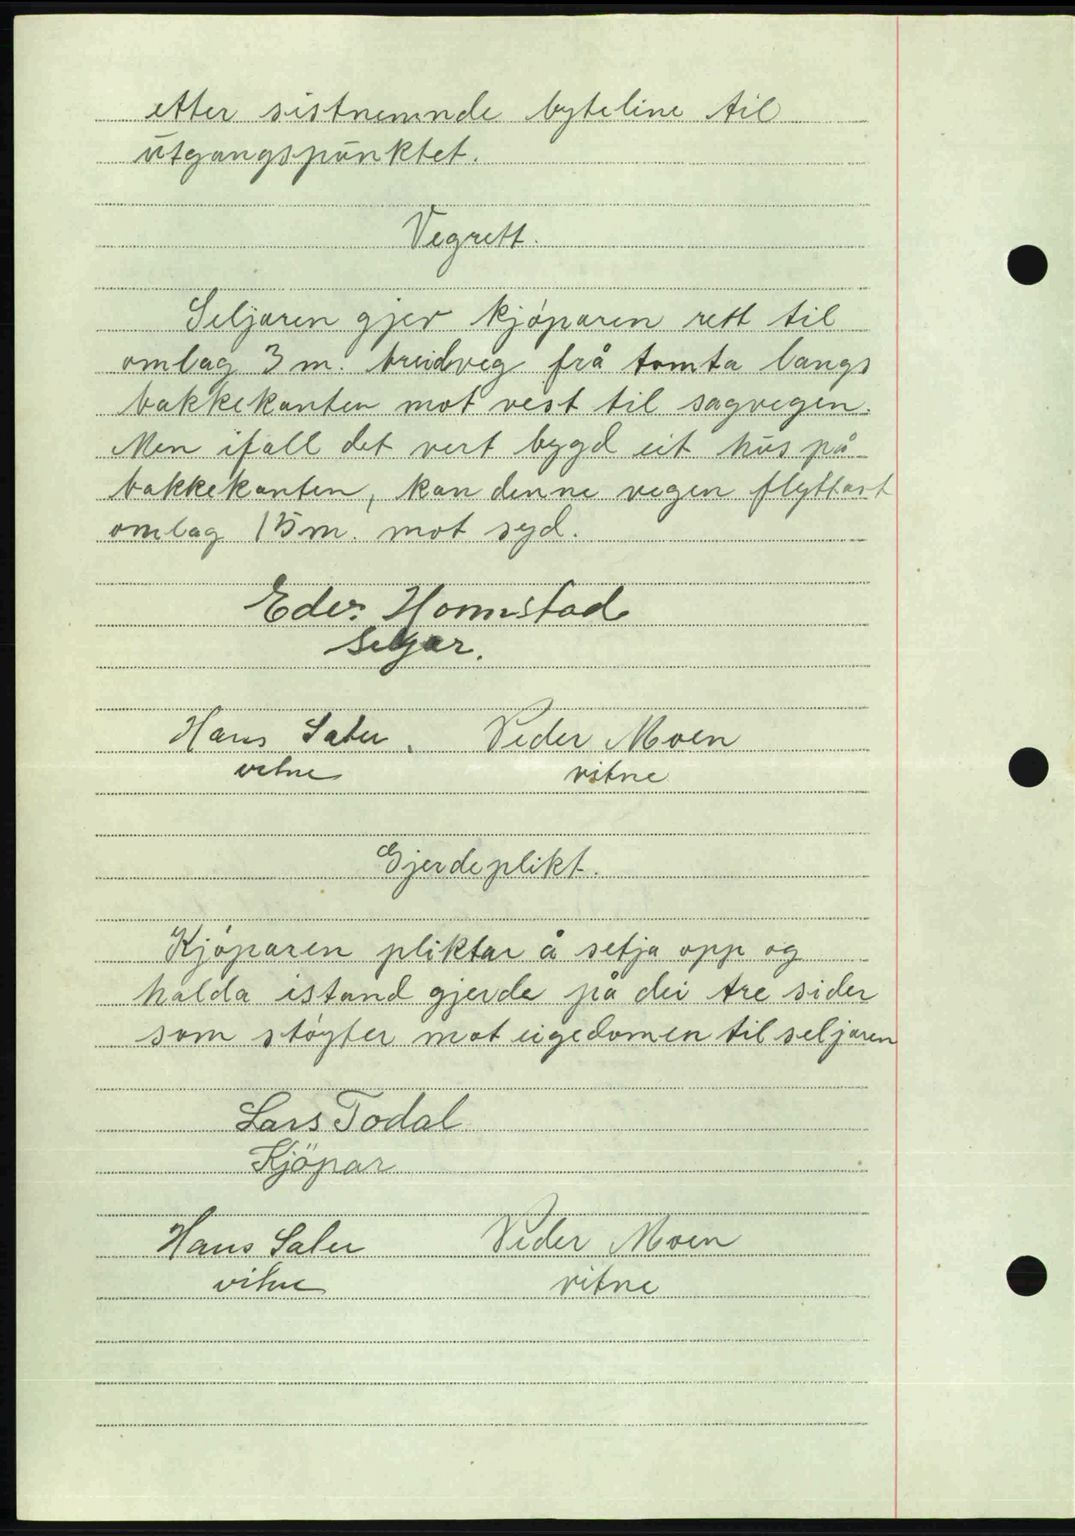 etter sistnemnde byteline til
utgangspunktet.
Vegrett.
Seljaren gjev kjóparen rett til
omlag 3 m. breidveg frå tomta langs
bakkekanten mot vest til sagvegen.
Men ifall det vert bygd eit hus på
bakkekanten, kan denne vegen flyttast
omlag 15 m. mot syd.
Eder Homstad
Seljar.
Hans Sater. Peder Moen
vitne vitne
Gjerdeplikt.
Kjóparen pliktar å setja opp og
halda istand gjerde på dei tre sider
som stóyter mot eigedomen til seljaren
Lars Todal
Kjöpar
Hans Sater Peder Moen
vitne vitne